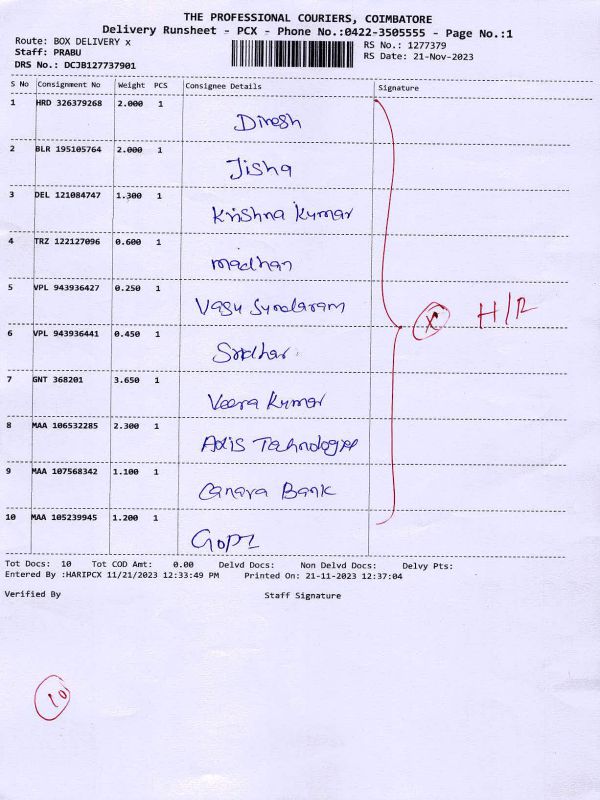 THE PROFESSIONAL COURIERS, COIMBATORE
Delivery Runsheet - PCX - Phone No.:0422-3505555 - Page No.:1
Route: BOX DELIVERY x
RS No.: 1277379
Staff: PRABU
RS Date: 21-Nov-2023
DRS No.: DCJB127737901
S No Consignment No Weight PCS Consignee Details Signature
1 HRD 326379268 2.000 1
Dinesh
2 BLR 195105764 2.000 1
Jisha
3 DEL 121084747 1.300 1
Krishna Kumar
4 TRZ 122127096 0.600 1
madhan
5 VPL 943936427 0.250 1
Vasu Sundaram
H/R
6 VPL 943936441 0.450 1
Sridhar
7 GNT 368201 3.650 1
Veera Kumar
8 MAA 106532285 2.300 1
9 MAA 107568342 1.100 1
Canara Bank
10 MAA 105239945 1.200 1
Gopi
Tot Docs: 10 Tot COD Amt: 0.00 Delvd Docs: Non Delvd Docs: Delvy Pts:
Entered By :HARIPCX 11/21/2023 12:33:49 PM Printed On: 21-11-2023 12:37:04
Verified By Staff Signature
10